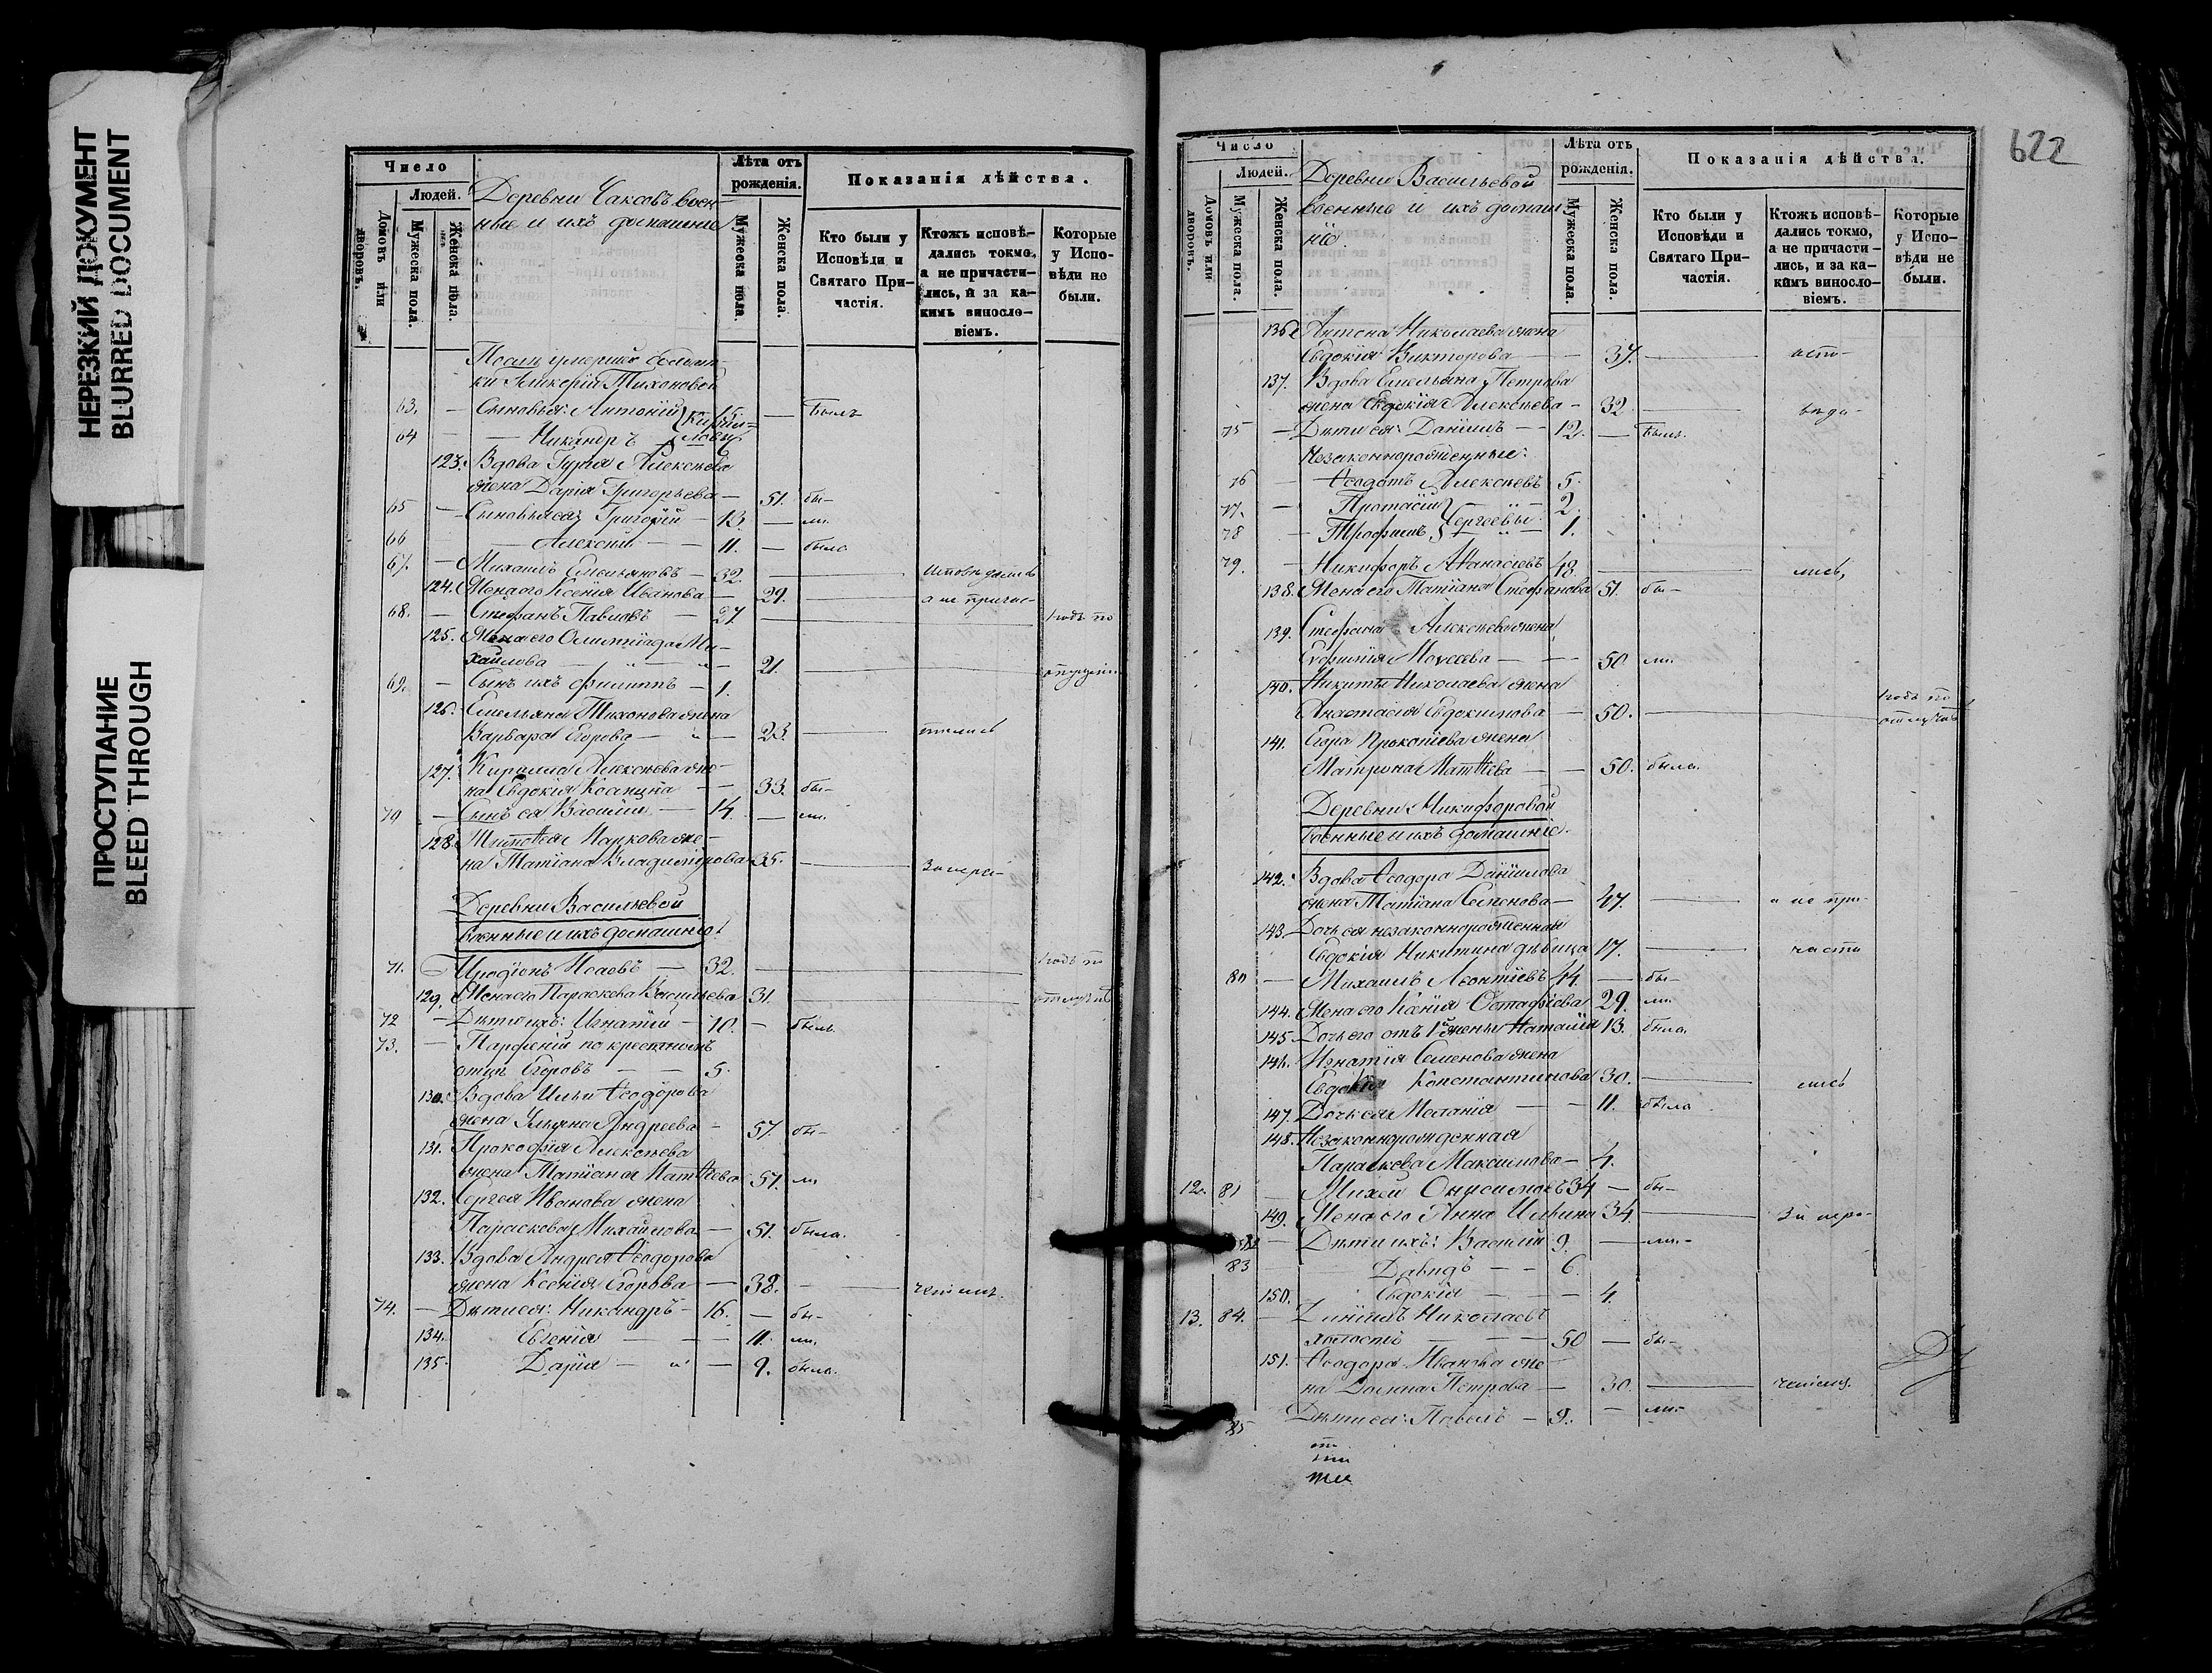 НЕРЕЗКИЙ ДОКУМЕНТ
BLURRED DOCUMENT
ПРОСТУПАНИЕ
BLEED THROUGH
Число
Людей.
Домовъ или дворовъ.
Мужеска пола.
Женска пола.
Деревни Саковъ воен-
ные и ихъ домашніе
Лѣта отъ рожденія.
Мужеска пола.
Женска пола.
Показанія дѣйства.
Кто были у Исповѣди и Святаго При-частія.
Ктожъ исповѣ-дались токмо, а не причасти-лись, и за ка-кимъ винословіемъ.
Которые у Испо-вѣди не были.
Послѣ умершей солдат-
ки Гликеріи Тихоновой
63. — Сыновья: Антоній 15. — Былъ
Кирил-
64 — — Никандръ ловы
123. Вдова Гурія Алексѣева
жена Дарія Григорьева — 51. бы-
65 — Сыновья ея Григорій — 13 — ли.
66 — Алексѣй — 11. — были
67. — Михаилъ Емельяновъ — 32. исповѣдались
124. Жена его Ксенія Иванова — 29. а не причас-
68. — Стефанъ Павловъ — 27
125. Жена его Олимпіада Ми-
хайлова — 21.
69. — Сынъ ихъ Филиппъ — 1.
126. Емельяна Тихонова жена
Варвара Егорова — 23. тились
127. Кирилла Алексѣева же-
на Евдокія Косьмина — 33. бы-
70 — Сынъ ея Василій — 14. — ли.
128. Тимоѳея Маркова же-
на Татіана Владимірова 35.
Деревни Васильевой
военные и ихъ домашніе
71. Иродіонъ Исаевъ — 32.
129. Жена его Параскева Васильева 31.
72 — Дѣти ихъ: Игнатій — 10. — былъ
73. — Парѳеній по крестномъ
отцѣ Егоровъ — 5.
130. Вдова Ильи Ѳеодорова
жена Ульяна Андреева — 57. бы-
131. Прокофія Алексѣева
жена Татіана Матѳеева 57. ли
132. Сергея Иванова жена
Параскева Михайлова — 51. была.
133. Вдова Андрея Ѳеодорова
жена Ксенія Егорова — 38.
74. — Дѣти ея: Никандръ — 16. — бы-
134. Евгенія — 11. ли.
135. Дарія — 9. была.
622
Число
Людей.
Домовъ или дворовъ.
Мужеска пола.
Женска пола.
Деревни Васильевой
военные и ихъ домаш-
ніе.
Лѣта отъ рожденія.
Мужеска пола.
Женска пола.
Показанія дѣйства.
Кто были у Исповѣди и Святаго При-частія.
Ктожъ исповѣ-дались токмо, а не причасти-лись, и за ка-кимъ винословіемъ.
Которые у Испо-вѣди не были.
136. Антона Николаева жена
Евдокія Викторова — 37. испо-
137. Вдова Емельяна Петрова
жена Евдокія Алексѣева — 32. вѣда-
75 — Дѣти ея: Даніилъ — 12. — Былъ.
Незаконнорожденные:
76 — Ѳеодотъ Алексѣевъ 5.
77. — Протасій 2.
Сергеевы
78 — Трофимъ 1.
79. — Никифоръ Аѳанасіевъ 48. лись,
138. Жена его Татіана Стефанова 51. бы-
139. Стефана Алексѣева жена
Евфимія Моѵсеева — 50 ли.
140. Никиты Николаева жена
Анастасія Евдокимова — 50.
141. Егора Прокопіева жена
Матрона Матѳеева — 50. была.
Деревни Никифоровой
военные и ихъ домашніе.
142. Вдова Ѳеодора Даніилова
жена Татіана Семенова — 47. а не при-
143. Дочь ея незаконнорожденная
Евдокія Никитина дѣвица 17. части
80 — Михаилъ Леонтіевъ 44. — бы-
144. Жена его Ксенія Остафіева 29. ли
145. Дочь его отъ 1й жены Наталія 13. была.
146. Игнатія Семенова жена
Евдокія Константинова 30. лись
147. Дочь ея Меланія — 11. была
148. Незаконнорожденная
Параскева Максимова — 4.
12. 81 — Михей Онисимовъ 34 — бы-
149. Жена его Анна Ильина 34.
82 — Дѣти ихъ: Василій 9. — ли.-
83 Давидъ — 6.
150. Евдокія — 4.
13. 84. — Даніилъ Николаевъ
холостъ — 50 — бы-
151. Ѳеодора Иванова же-
на Домна Петрова — 30.
85 Дѣти ея: Павелъ — 9. — ли-